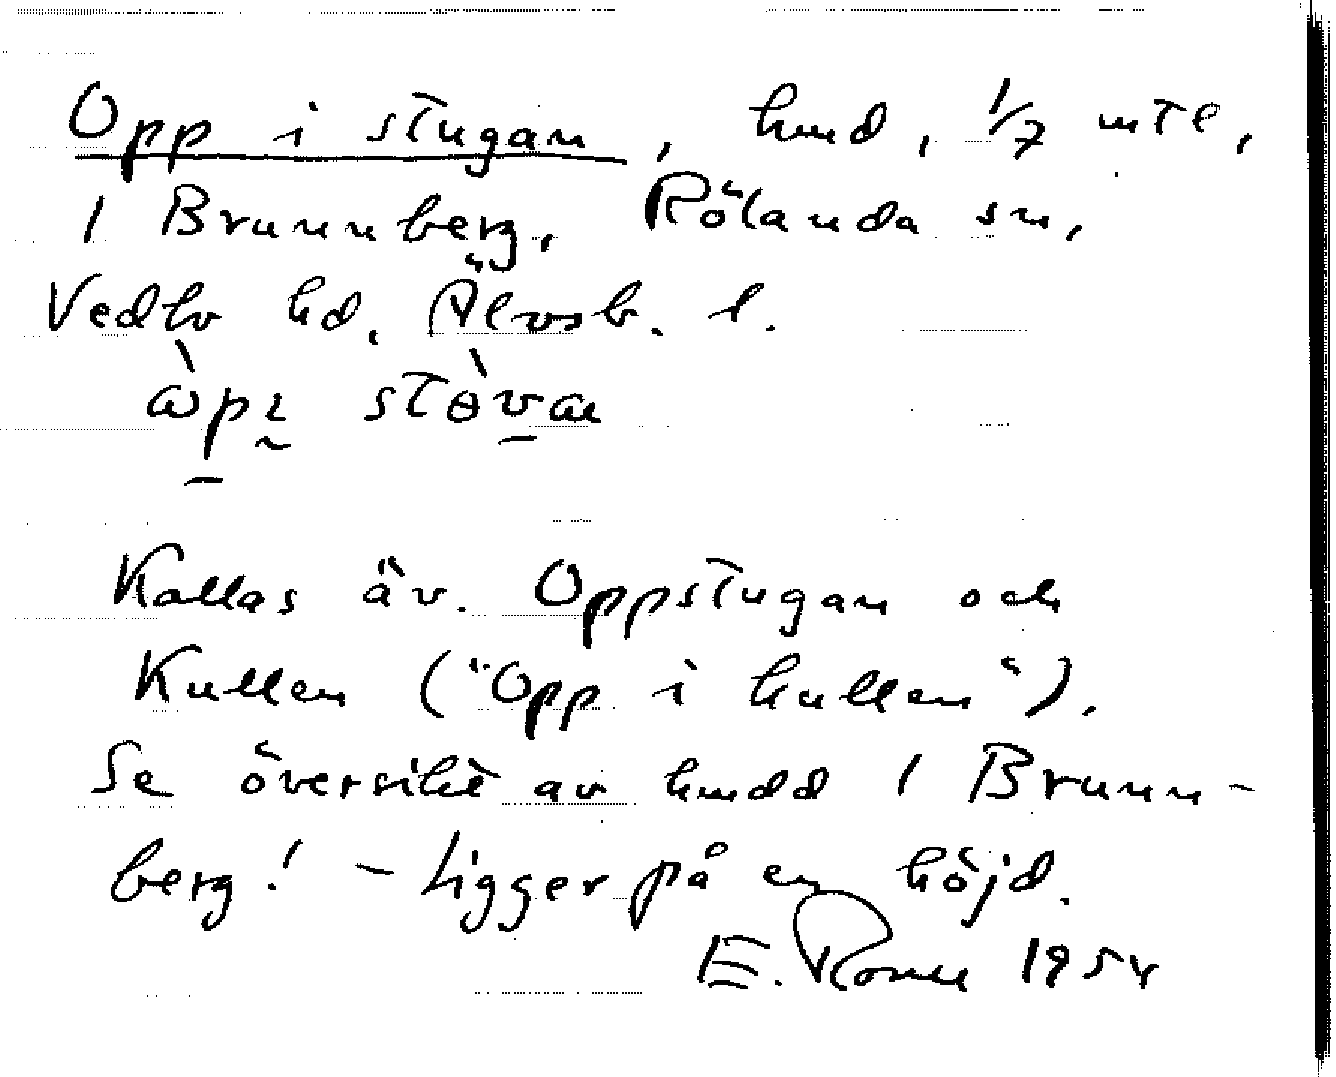 Opp i stugan, hmd, 1/7 mtl,
1 Brunnberg, Rölanda sn,
Vedbo hd, Älvsb. l.
Kallas äv. Oppstugan och
Kullen ("Opp i kullen").
Se översikt av hmdd 1 Brunn-
berg! – Ligger på en höjd.
E. 1954